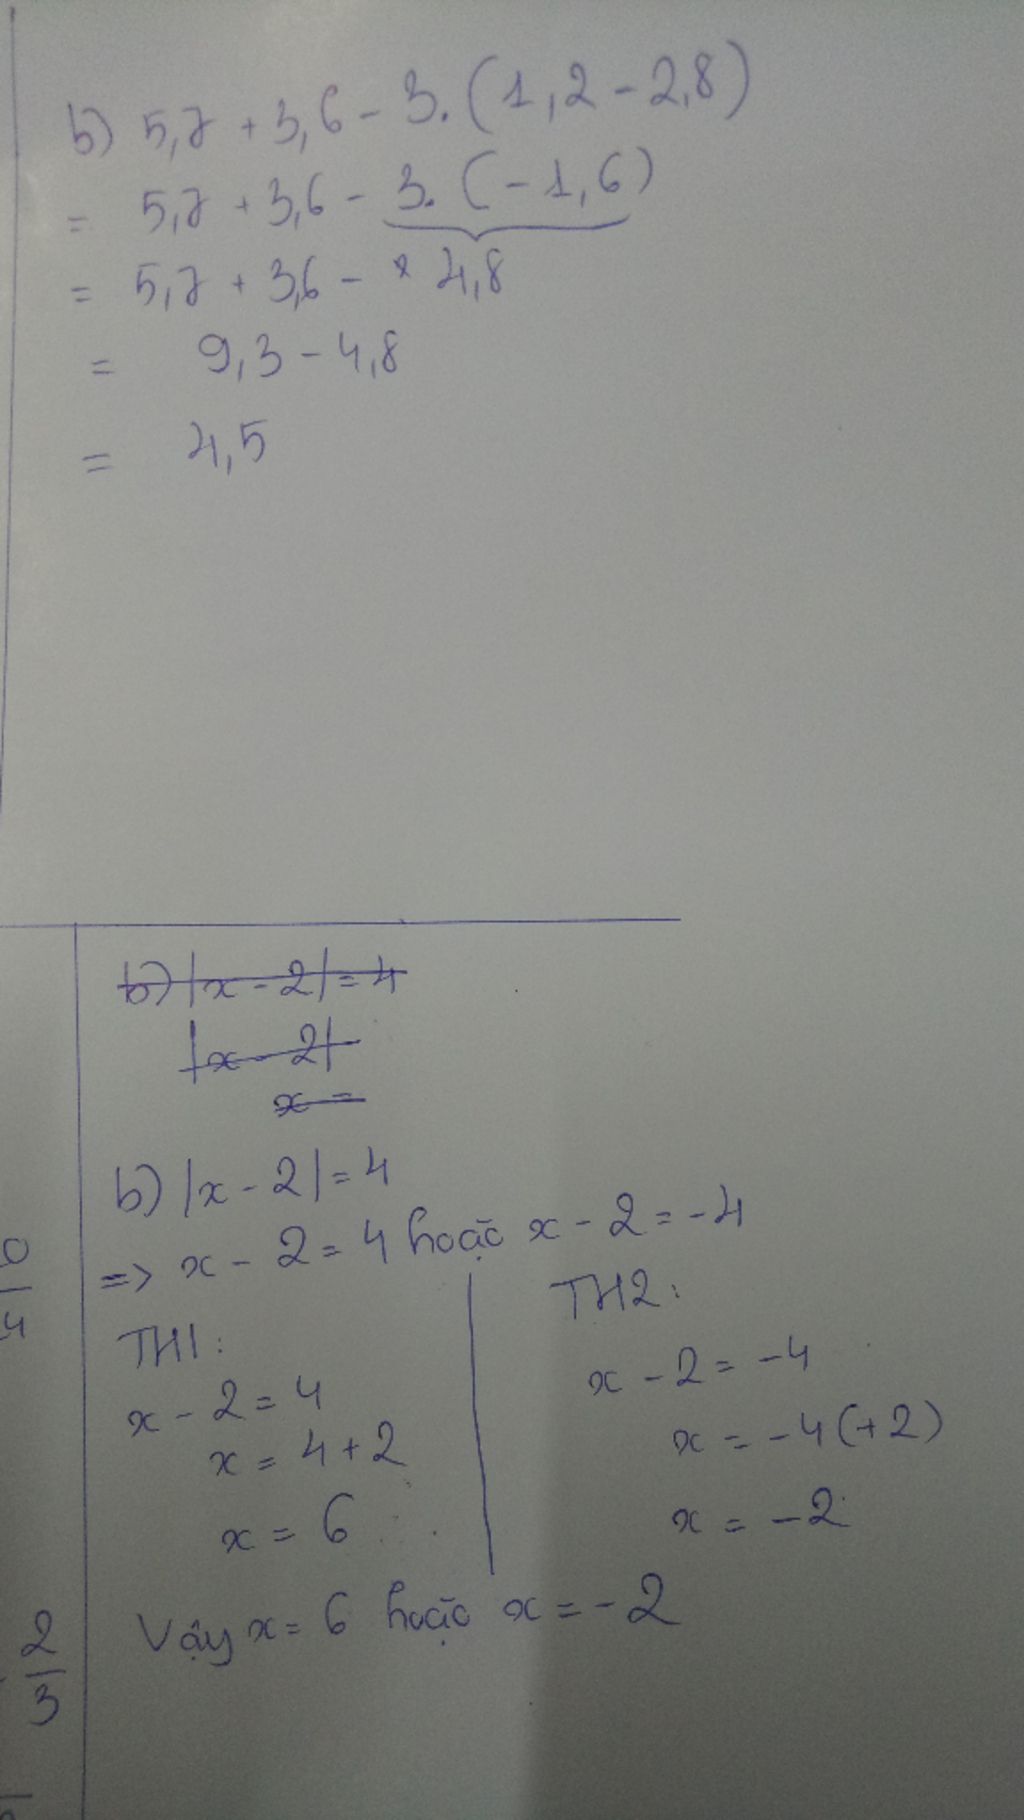 b) 5,7 + 3,6 - 3. (1,2 - 2,8)
= 5,7 + 3,6 - 3. (-1,6)
= 5,7 + 3,6 - 4,8
= 9,3 - 4,8
= 4,5
b) |x - 2| = 4
|x - 2|
x =
b) |x - 2| = 4
=> x - 2 = 4 hoặc x - 2 = -4
TH1:
x - 2 = 4
x = 4 + 2
x = 6
TH2:
x - 2 = -4
x = -4 (+2)
x = -2
Vậy x = 6 hoặc x = -2
2
3